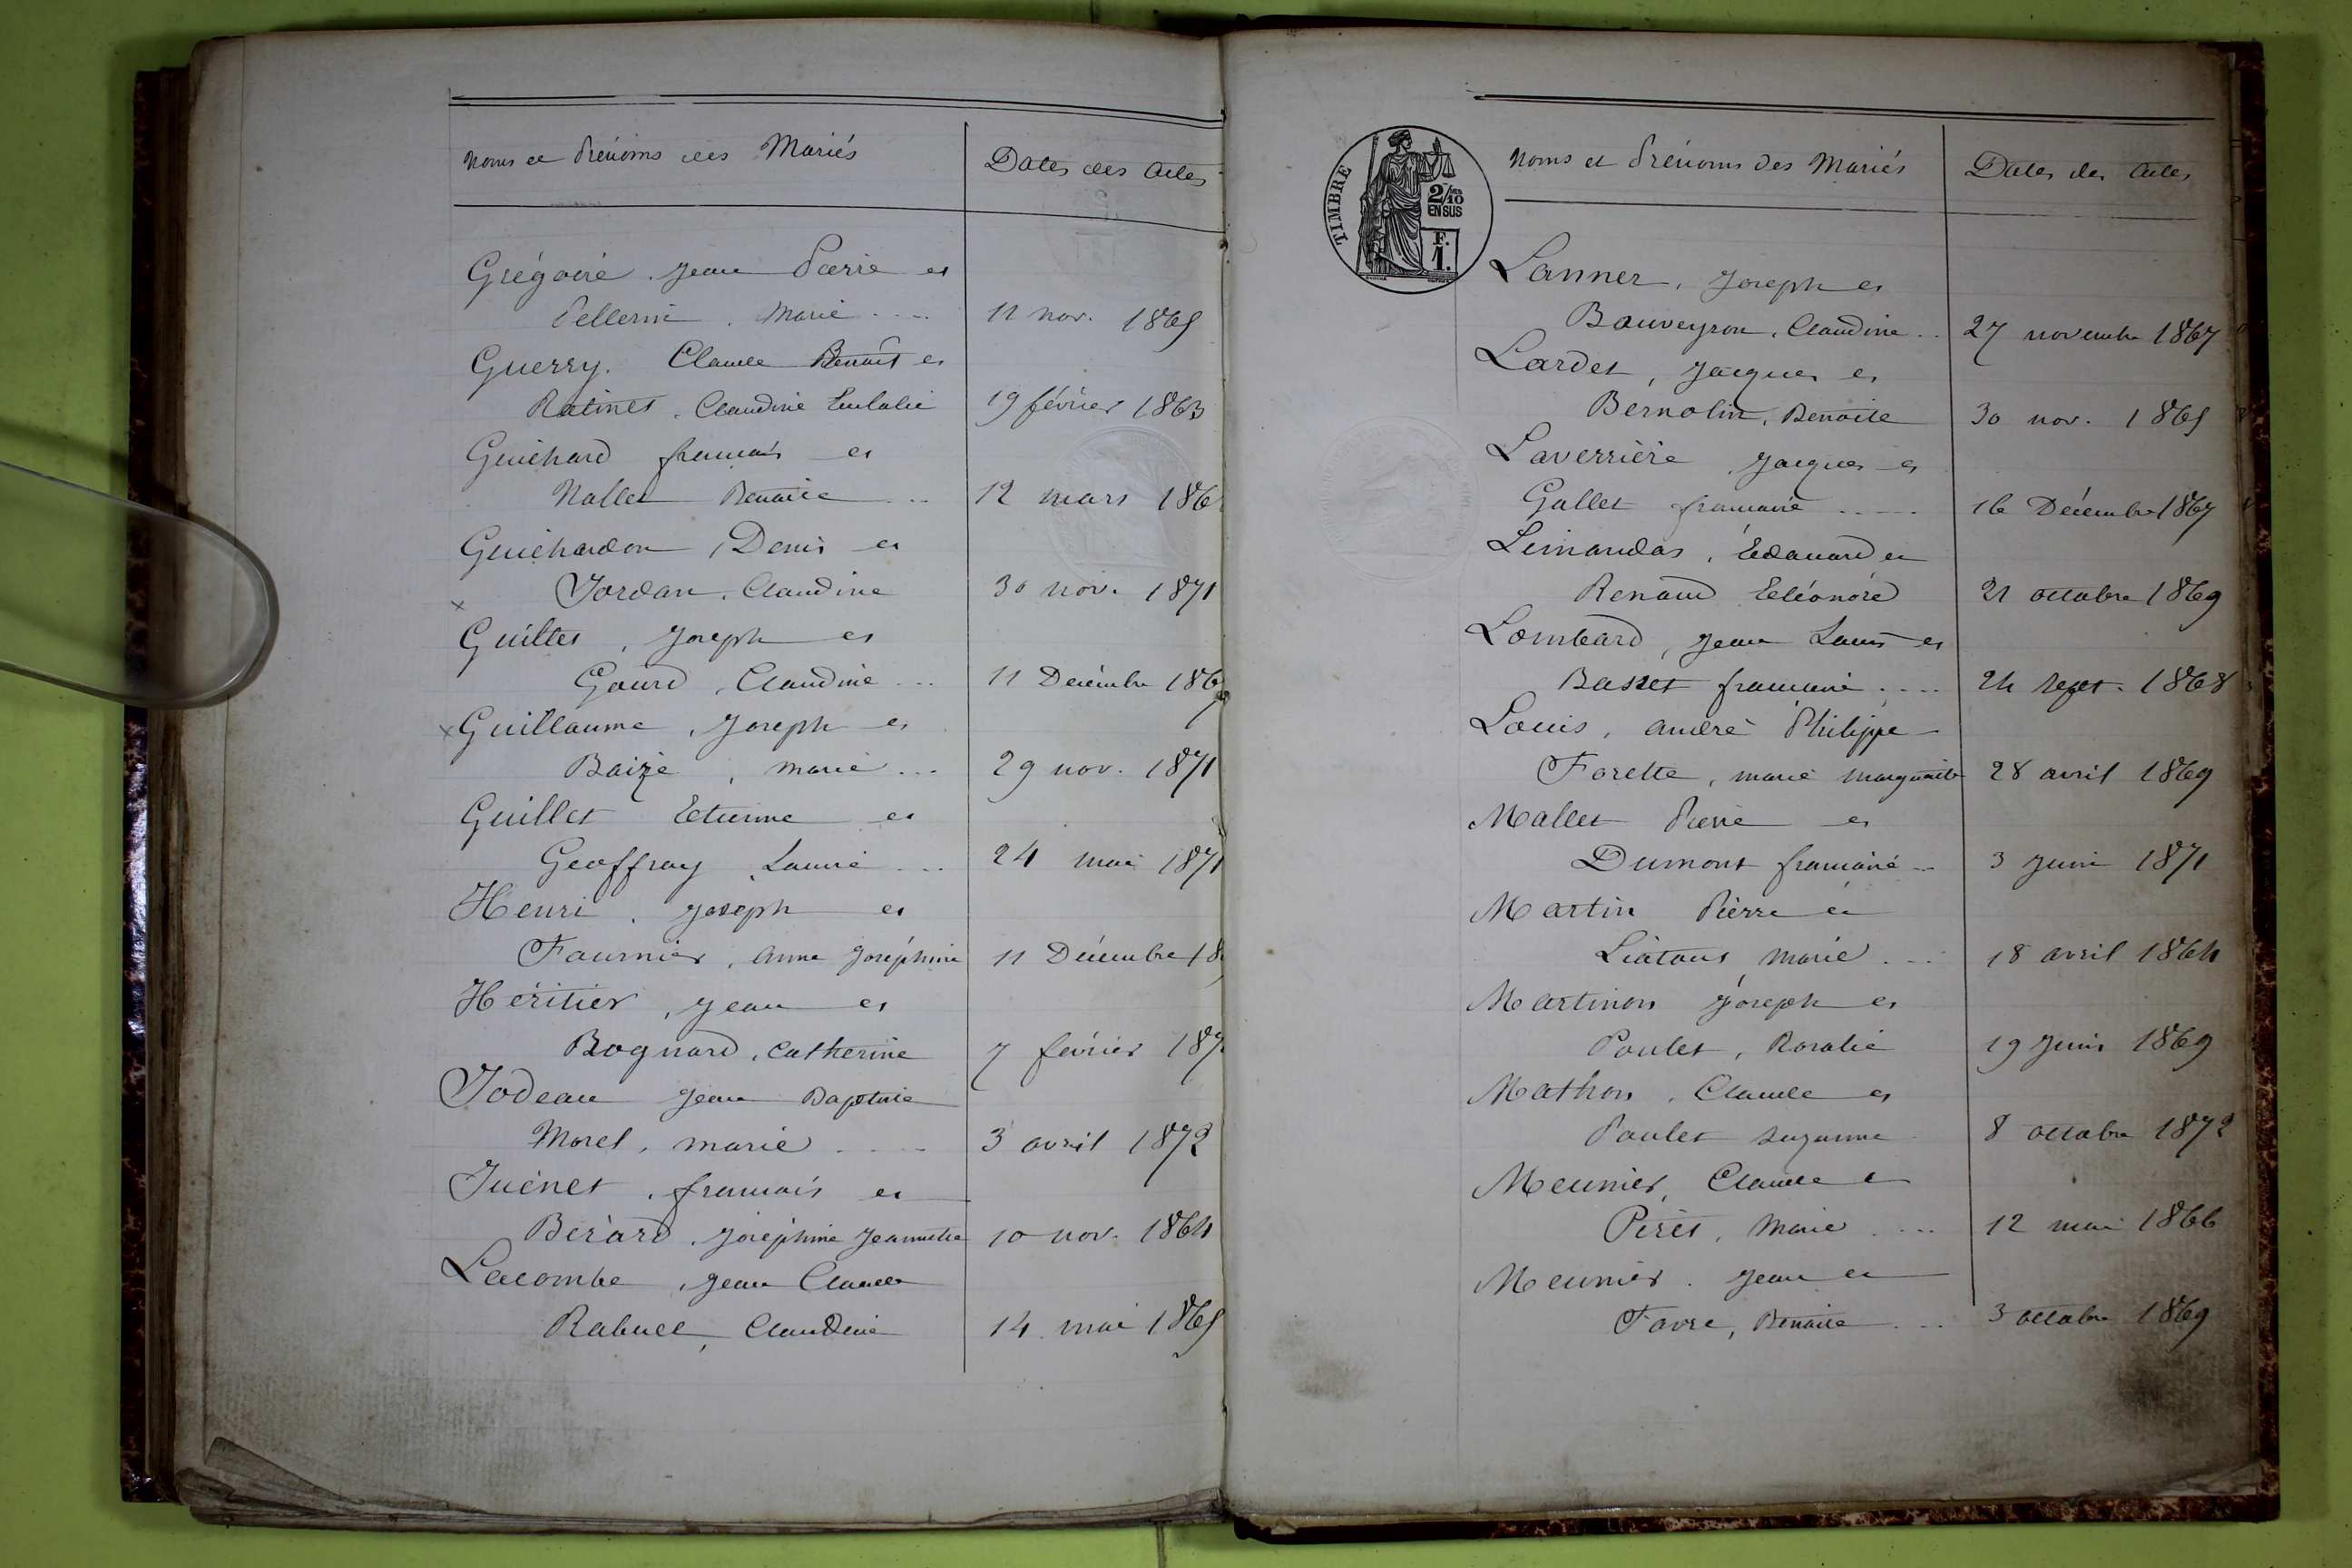 Noms et Prénoms des Mariés
Dates des Actes
Grégoire. Jean Pierre et
Pellerin. Marie .... 11 nov. 1865
Guerry. Claude Benoît et
Ratinet. Claudine Eulalie 19 février 1863
Guichard françois et
Nallet Benoite ... 12 mars 186
Guichardon, Denis et
x Jordan. Claudine 30 nov. 1871
Guilter, Joseph et
Gourd, Claudine ... 11 Décembre 1869
x Guillaume, Joseph et
Baize, marie ... 29 nov. 1871
Guillet Etienne et
Geoffray Laurie ... 24 mai 1871
Henri. Joseph et
Fournier, Anne Joséphine 11 Décembre 18
Héritier, Jean et
Rognard, Catherine 7 février 187
Jodeau Jean Baptiste
Morel, marie .... 3 avril 1872
Juénet, françois et
Bérard. Joséphine Jeannette 10 nov. 1864
Lacombe, Jean Claude
Rabuel, Claudine 14 mai 1865
TIMBRE
2/10
EN SUS
F.
1.
Noms et Prénoms des Mariés
Dates des Actes
Lanner, Joseph et
Bouveyron, Claudine .. 27 novembre 1867
Lardet, Jacques et
Bernolin, Benoite 30 nov. 1865
Laverrière Jacques et
Gallet françoise .... 16 Décembre 1867
Limandas, Edouard et
Renaud Eléonore 21 octobre 1869
Lombard, Jean Louis et
Basset françoise .... 24 sept. 1868
Louis, André Philippe
Forette, marie Marguerite 28 avril 1869
Mallet Pierre et
Dumont françoise .. 3 Juin 1871
Martin Pierre et
Liatous, Marie ... 18 avril 1864
Martinon Joseph et
Poulet, Rosalie 19 Juin 1869
Mathon, Claude et
Poulet Suzanne 8 octobre 1872
Meunier, Claude et
Péret, Marie .... 12 mai 1866
Meunier. Jean et
Favre, Benoite ... 3 octobre 1869